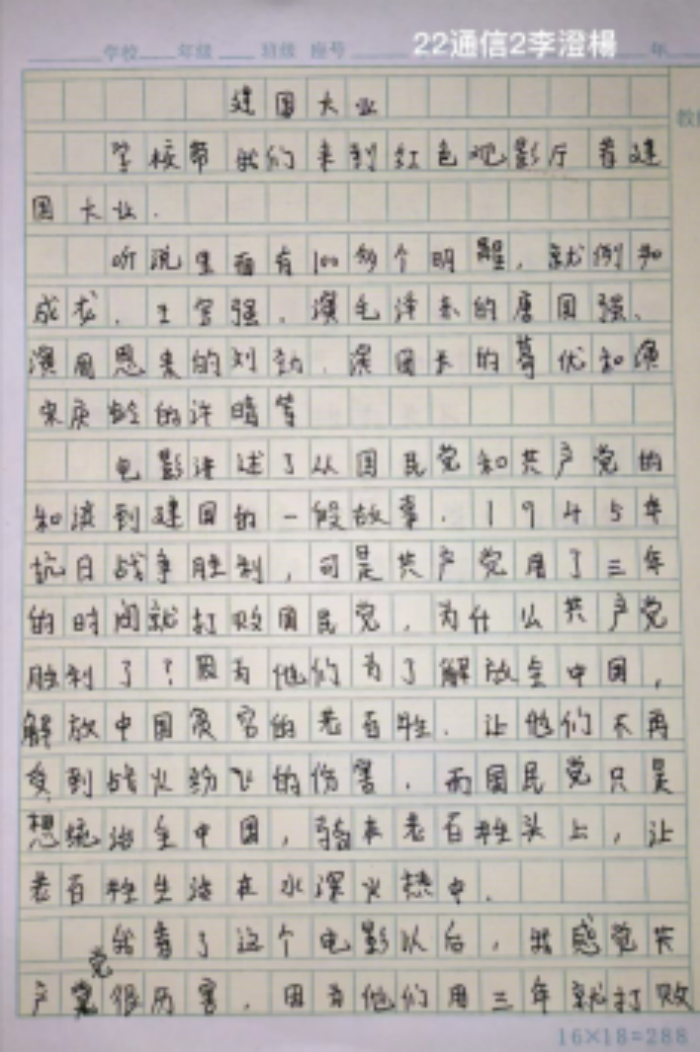 学校 年级 班级 座号 22通信2李澄楊 年
建国大业
学校带我们来到红色观影厅看建
国大业.
听说里面有100多个明醒,就例如
成龙、王宝强、演毛泽东的唐国强、
演周恩来的刘劲、演国长的蒋优和演
宋庆龄的许晴等
电影讲述了从国民党和共产党的
和谈到建国的一段故事.1945年
抗日战争胜利,可是共产党用了三年
的时间就打败国民党,为什么共产党
胜利了?因为他们为了解放全中国,
解放中国贫穷的老百牲.让他们不再
受到战火纷飞的伤害.而国民党只是
想统治全中国,骑在老百牲头上,让
老百牲生活在水深火热中.
我看了这个电影以后,我感觉共
产党很历害.因为他们用三年就打败
16×18=288